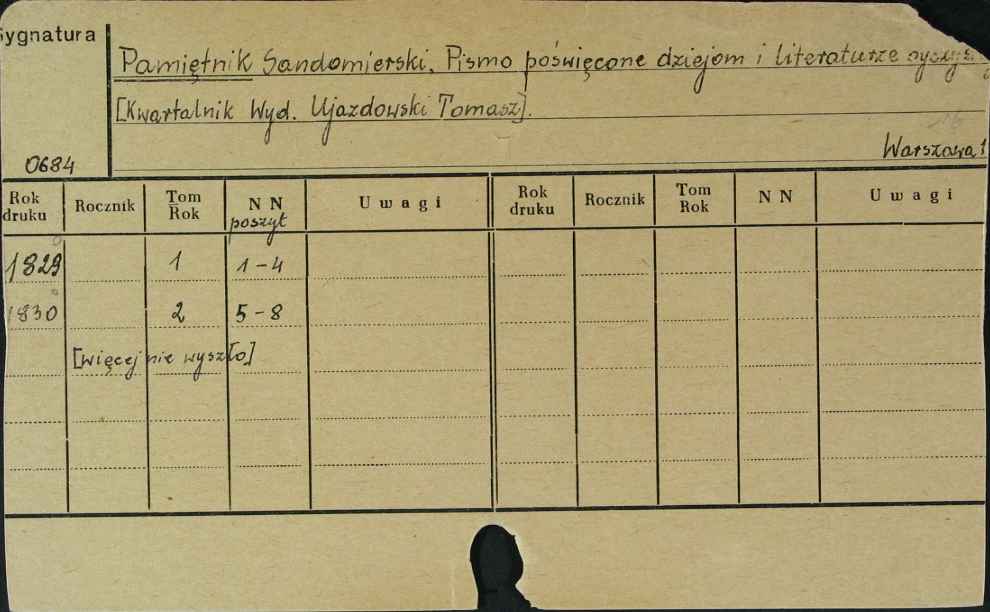 Sygnatura
Pamiętnik Sandomierski. Pismo poświęcone dziejom i literaturze
[Kwartalnik Wyd. Ujazdowski Tomasz].
0684
Warszawa 1
Rok druku Rocznik Tom Rok N N poszyt Uwagi Rok druku Rocznik Tom Rok N N Uwagi
1829 1 1-4
1830 2 5-8
[więcej nie wyszło]